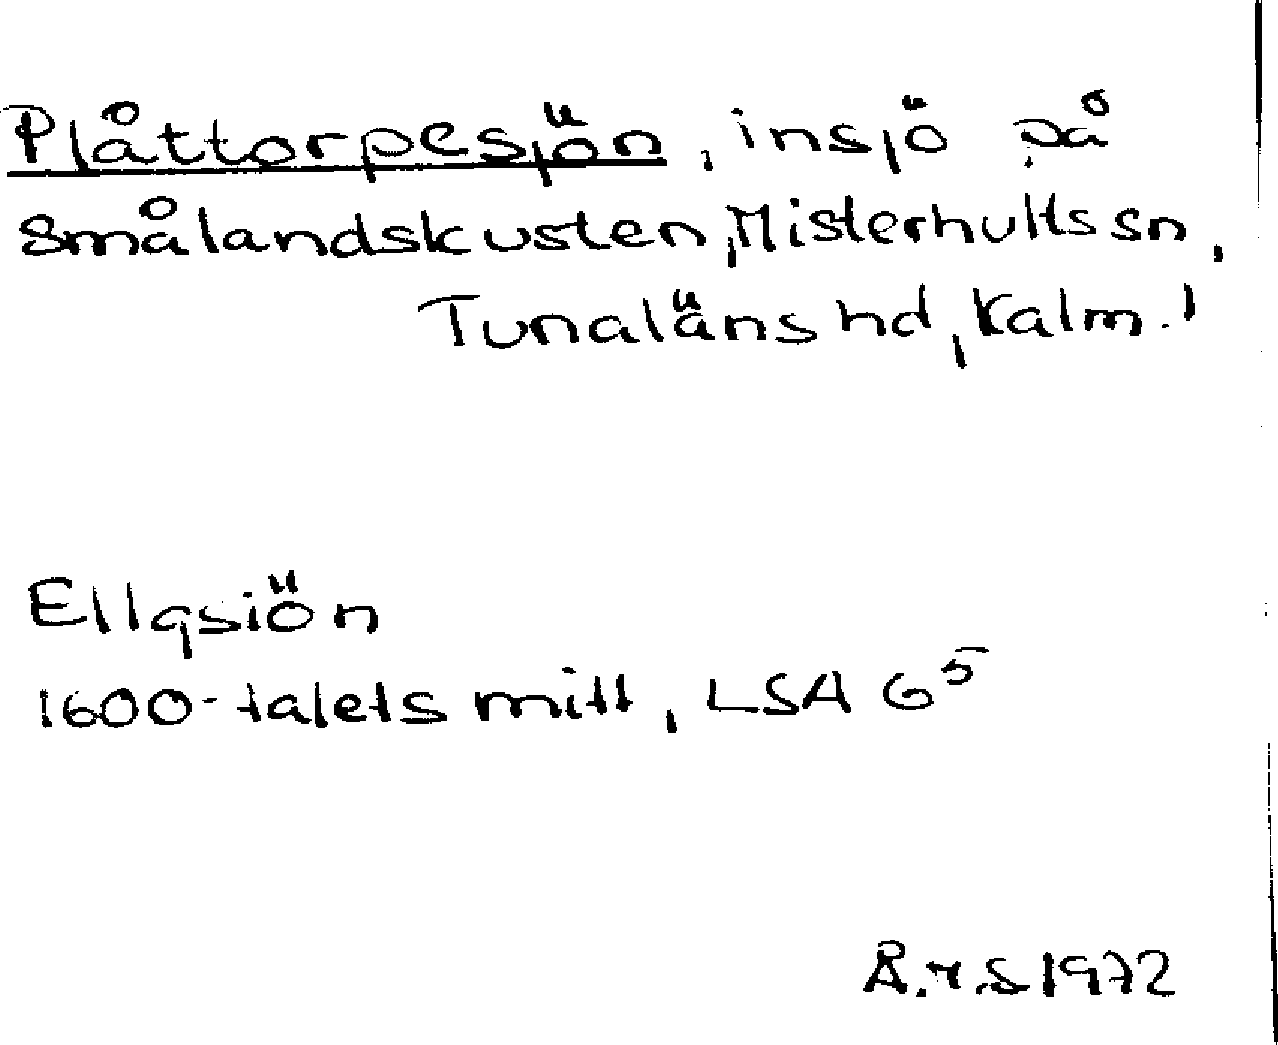 Plåttorpesjön, insjö på
Smålandskusten, Misterhults sn,
Tunaläns hd, Kalm. l
Ellgsiön
1600-talets mitt, LSA G⁵
1972